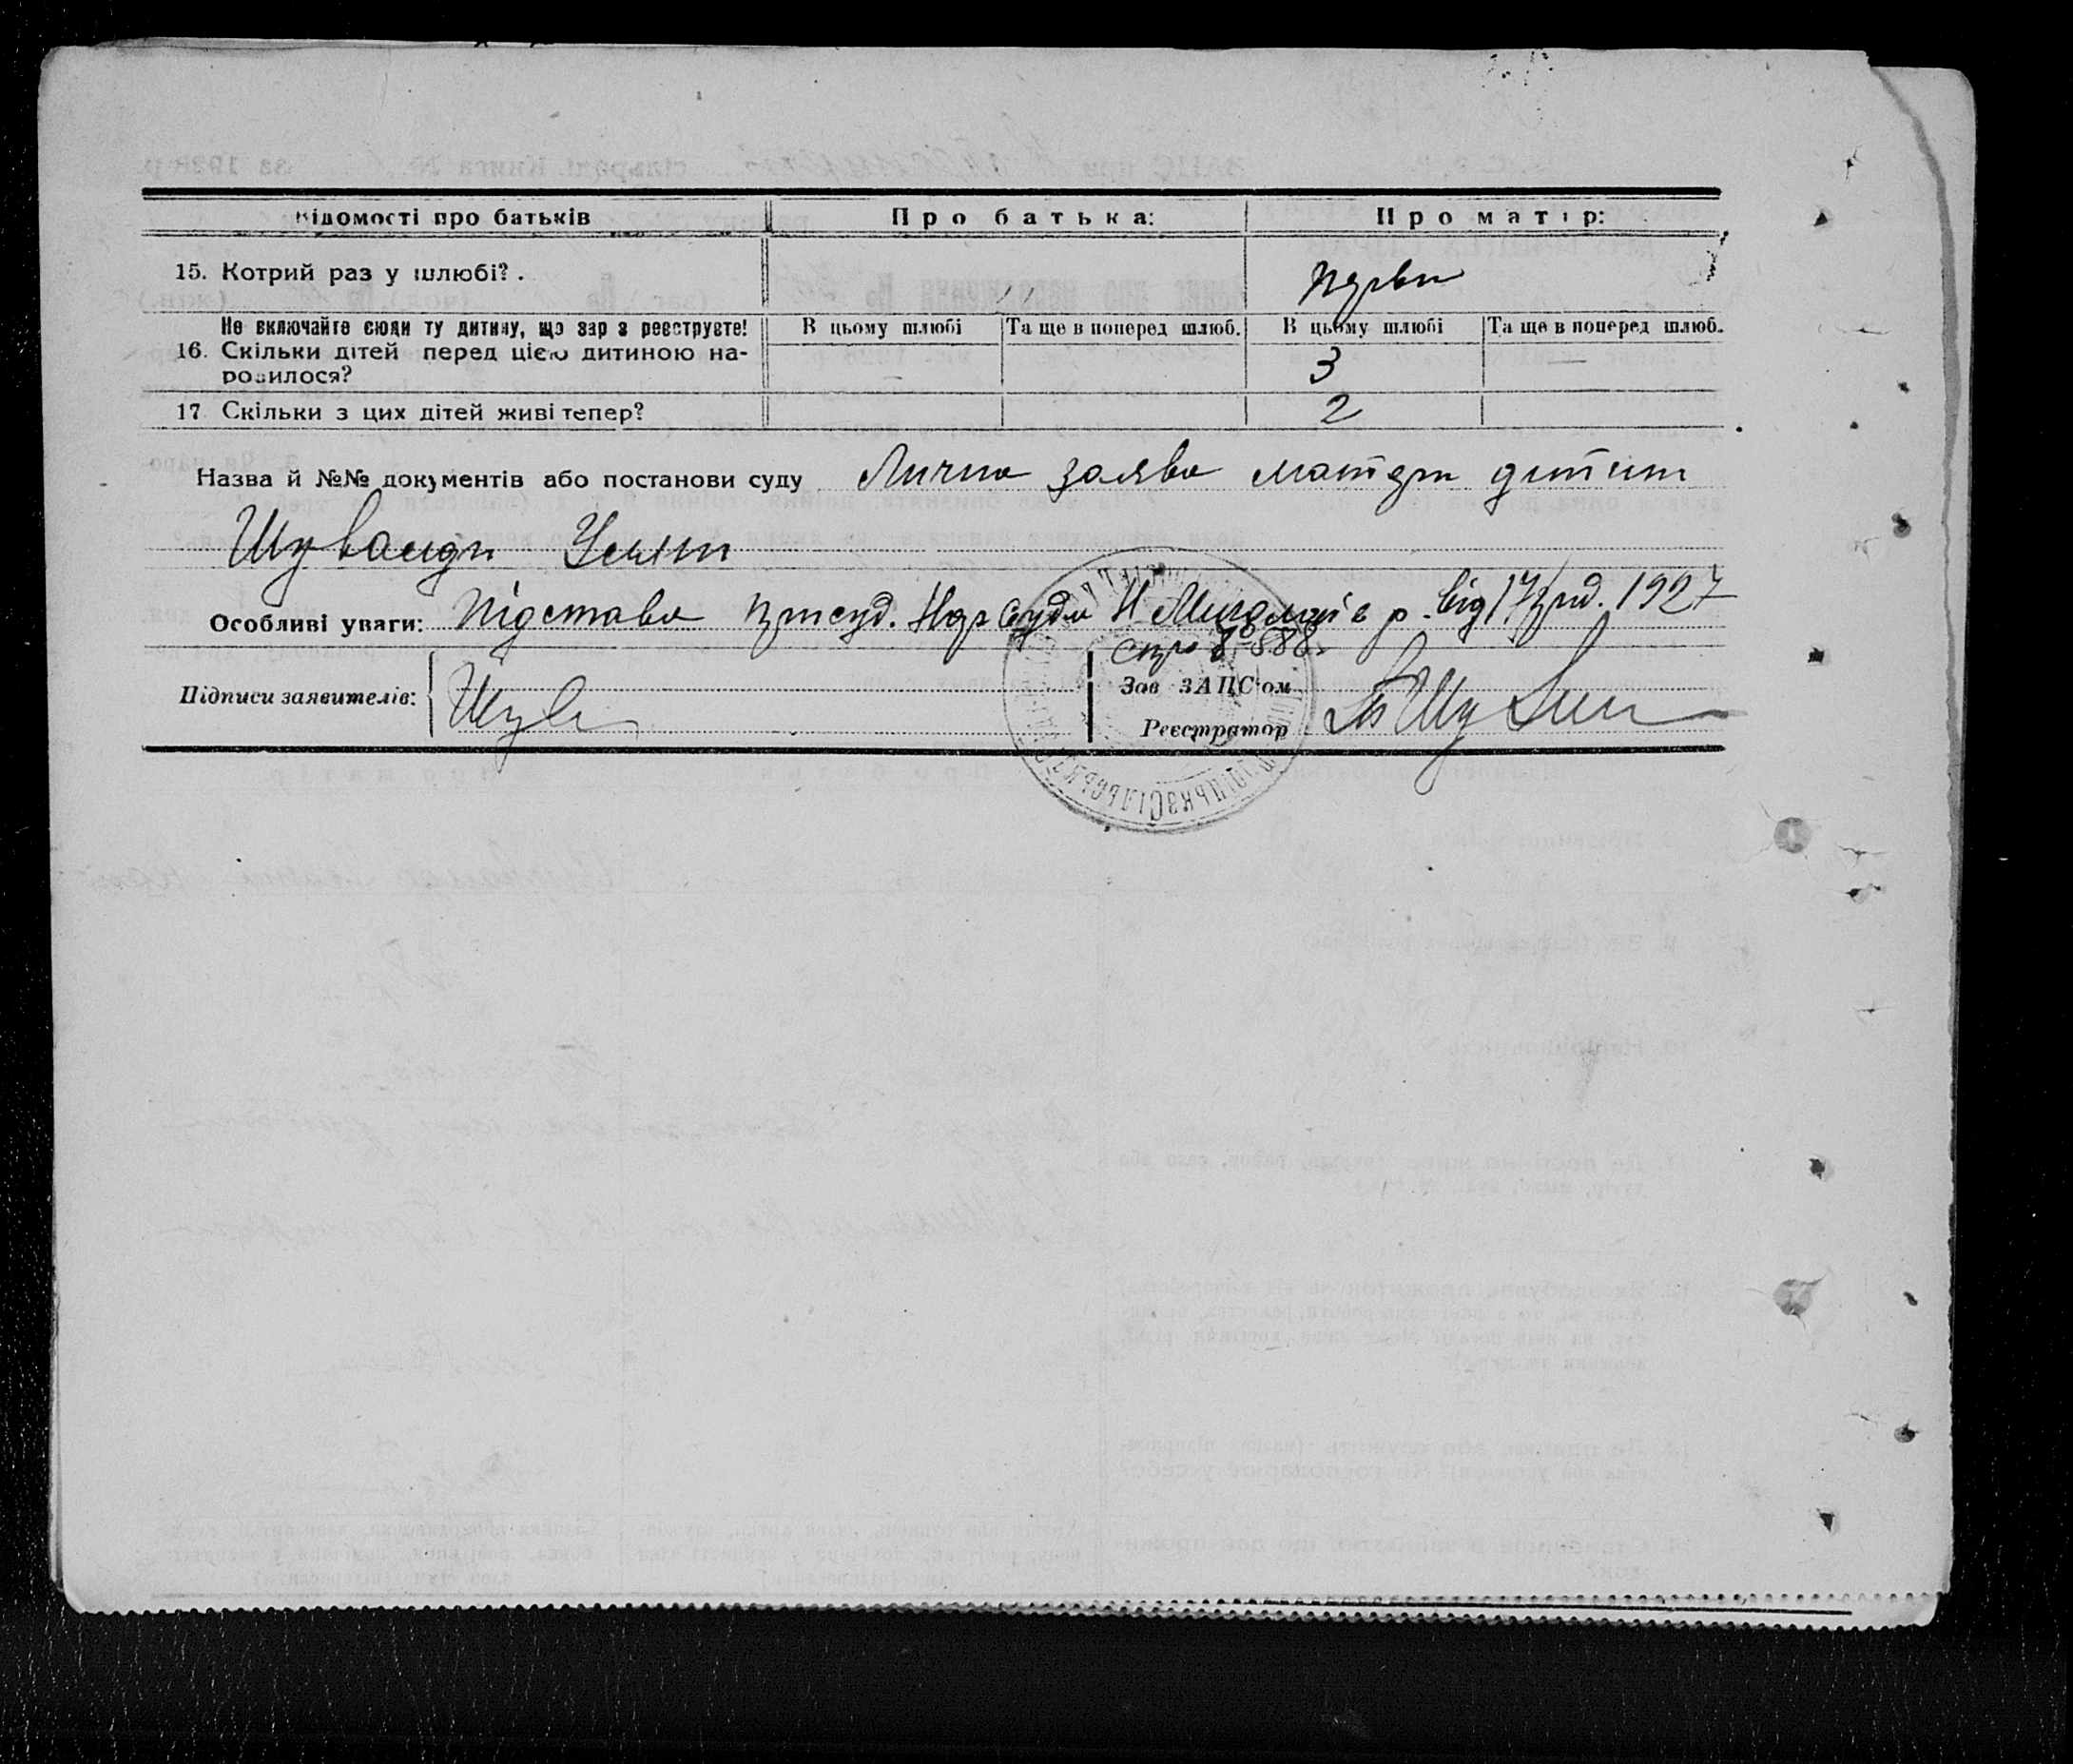 Відомості про батьків Про батька: Про матір:
15. Котрий раз у шлюбі?. перви
Не включайте сюди ту дитину, що зараз реєструєте! В цьому шлюбі Та ще в поперед шлюб. В цьому шлюбі Та ще в поперед шлюб.
16. Скільки дітей перед цією дитиною на-
родилося? 3 —
17 Скільки з цих дітей живі тепер? 2
Назва й №№ документів або постанови суду Лична заява матери дитини
Особливі уваги: Підстава присуд. Нар Суда Н Миколаїв р. від 17/ 1927
спр 8588
Підписи заявителів: Шув
Зав ЗАЦС'ом
Реєстратор